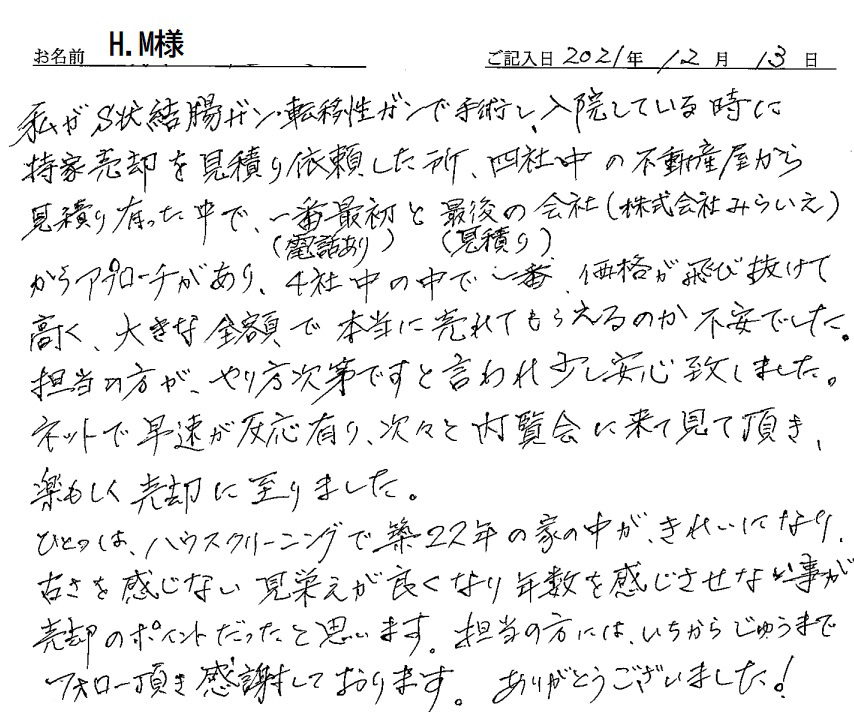 お名前 H.M様 ご記入日 2021年 12月 13日
私がS状結腸ガン・転移性ガンで手術し、入院している時に
持家売却を見積り依頼した所、四社中の不動産屋から
見積り有った中で、一番最初と最後の会社(株式会社みらいえ)
(電話あり) (見積り)
からアプローチがあり、4社中の中で一番、価格が飛び抜けて
高く、大きな金額で本当に売れてもらえるのか不安でした。
担当の方が、やり方次第ですと言われ少し安心致しました。
ネットで早速が反応有り、次々と内覧会に来て見て頂き、
楽もしく売却に至りました。
ひとつは、ハウスクリーニングで築22年の家の中が、きれいになり、
古さを感じない見栄えが良くなり年数を感じさせない事が
売却のポイントだったと思います。担当の方には、いちからじゅうまで
フォロー頂き感謝しております。ありがとうございました!